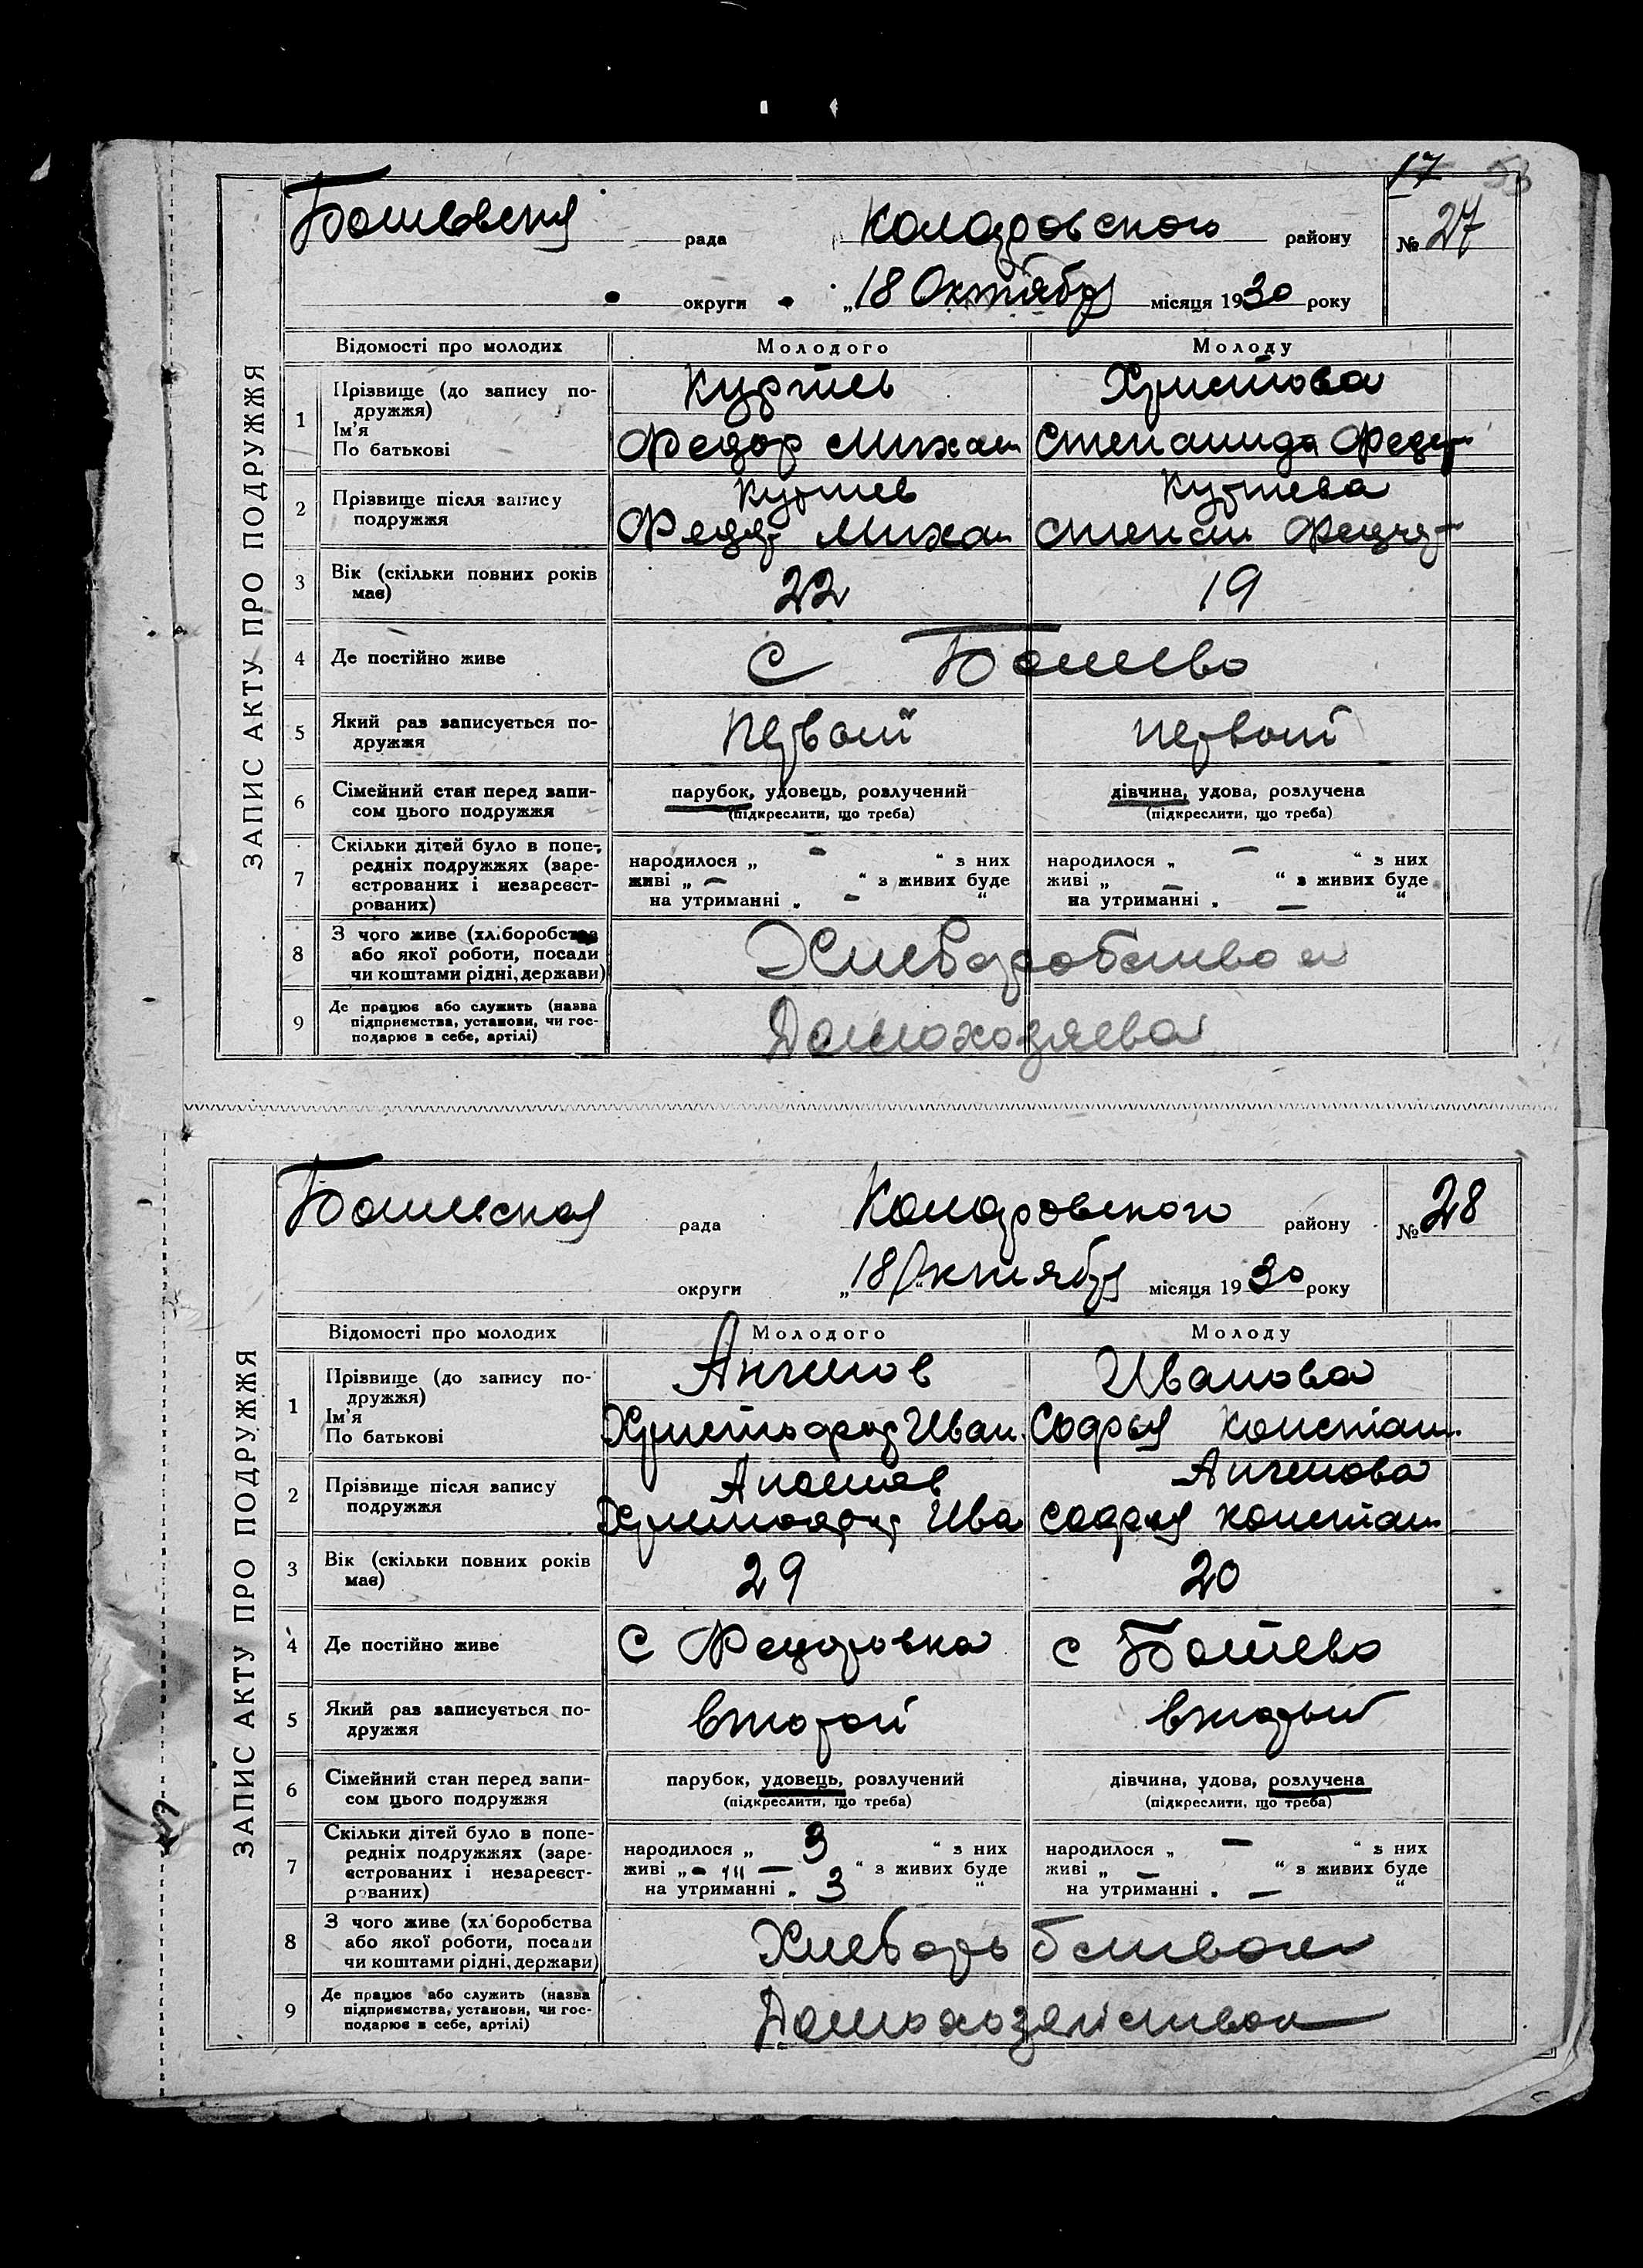 17 53
рада Коларовского району № 27
округи „18 Октября місяця 1930 року
ЗАПИС АКТУ ПРО ПОДРУЖЖЯ
Відомості про молодих Молодого Молоду
1 Прізвище (до запису по-
дружжя)
Ім'я
По батькові
Куртев Христова
Федор Михаи Степанида Федор
2 Прізвище після запису
подружжя
Куртев Куртева
Федор Михаи Степани Федор
3 Вік (скільки повних років
має)
22 19
4 Де постійно живе С Ботево
5 Який раз записується по-
дружжя
первый первый
6 Сімейний стан перед запи-
сом цього подружжя
парубок, удовець, розлучений дівчина, удова, розлучена
(підкреслити, що треба) (підкреслити, що треба)
7 Скільки дітей було в попе-
редніх подружжях (заре-
єстрованих і незареєст-
рованих)
народилося „ — “ з них народилося „ — “ з них
живі „ — “ з живих буде живі „ — “ з живих буде
на утриманні „ — “ на утриманні „ — “
8 З чого живе (хліборобства
або якої роботи, посади
чи коштами рідні, держави)
Хлеборобством
9 Де працює або служить (назва
підприємства, установи, чи гос-
подарює в себе, артілі)
Ботевская рада Коларовского району № 28
округи „18 Октября місяця 1930 року
ЗАПИС АКТУ ПРО ПОДРУЖЖЯ
Відомості про молодих Молодого Молоду
1 Прізвище (до запису по-
дружжя)
Ім'я
По батькові
Ангелов Иванова
Христофор Иван. Софья Констан.
2 Прізвище після запису
подружжя
Ангелова
Христофор Ива Софья Констан
3 Вік (скільки повних років
має)
29 20
4 Де постійно живе С Федоровка с Ботево
5 Який раз записується по-
дружжя
второй вторый
6 Сімейний стан перед запи-
сом цього подружжя
парубок, удовець, розлучений дівчина, удова, розлучена
(підкреслити, що треба) (підкреслити, що треба)
7 Скільки дітей було в попе-
редніх подружжях (заре-
єстрованих і незареєст-
рованих)
народилося „ 3 “ з них народилося „ — “ з них
живі „ — “ з живих буде живі „ — “ з живих буде
на утриманні „ 3 “ на утриманні „ — “
8 З чого живе (хліборобства
або якої роботи, посади
чи коштами рідні, держави)
Хлеборобством
9 Де працює або служить (назва
підприємства, установи, чи гос-
подарює в себе, артілі)